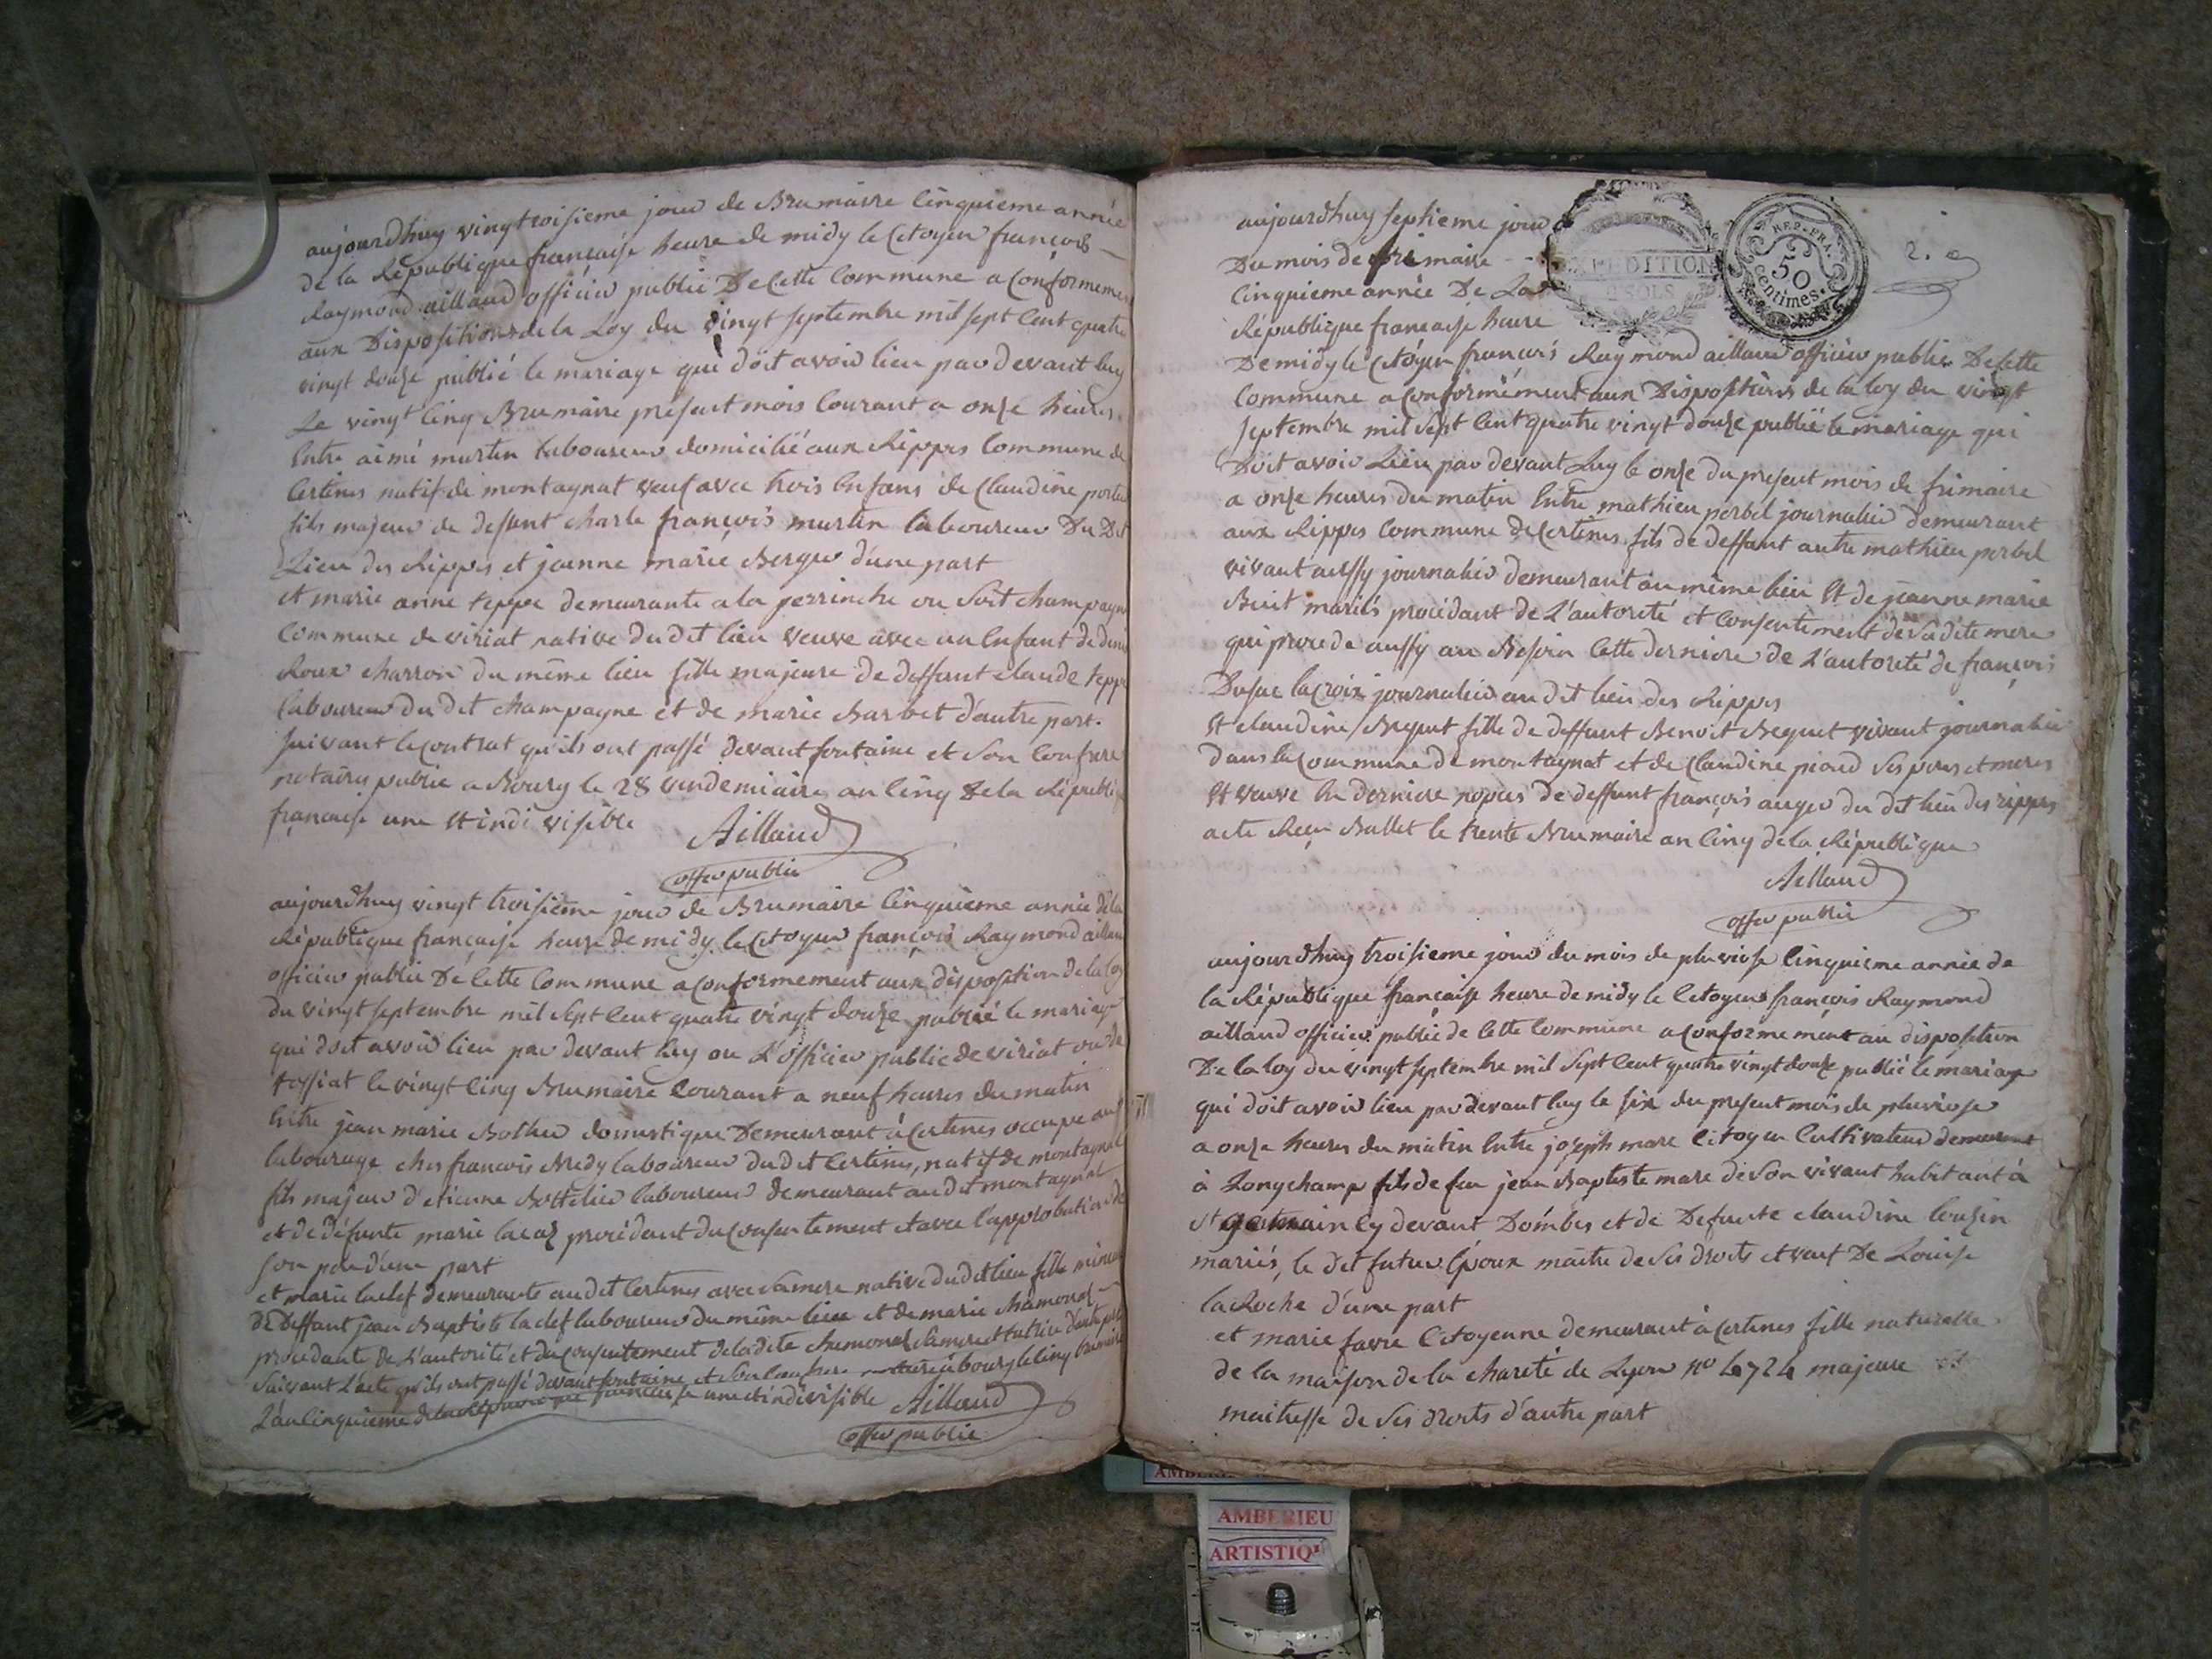 aujourdhuy vingtroisieme jour de Brumaire Cinquieme année
de la République francaise heure de midy le Citoyen françois
Raymond aillaud officier public De Cette Commune a Conformeme
aux Dispositions de la Loy du vingt septembre mil sept Cent quatre
vingt douze publié le mariage qui doit avoir lieu par devant luy
Le vingt Cinq Brumaire present mois Courant a onze heures
Entre aimé martin laboureur domicilié aux Rippes Commune de
Certines natif de montagnat veuf avec trois Enfans de Claudine
fils majeur de defunt Charle françois martin laboureur Du Dit
Lieu des Rippes et jeanne marie Berger d'une part
et marie anne teppe demeurante a la perrinche ou soit champagne
Commune de viriat native du dit lieu veuve avec un Enfant de
Roux charron du même lieu fille majeure de deffunt claude tepp
laboureur du dit champagne et de marie Barbet d'autre part.
suivant le Contrat qu'ils ont passé devant fontaine et son Confrere
notaires public a Bourg le 28 vendemiaire an Cinq de la Républi
française une et indivisible Aillaud
offer public
aujourdhuy vingt troisieme jour de Brumaire Cinquieme année de la
République française heure de midy le Citoyen françois Raymond aillau
officier public De Cette Commune a Conformement aux disposition de la Loy
du vingt septembre mil sept Cent quatre vingt douze publié le mariage
qui doit avoir lieu par devant luy ou L'officier public de viriat ou de
tossiat le vingt Cinq Brumaire Courant a neuf heures du matin
Entre jean marie Bottier domestique Demeurant à Certines occupé au
labourage ches francois Bredy laboureur dudit Certines, natif de montagnat
fils majeur d'etienne Bottelier laboureur demeurant audit montagnat
et de défunte marie procédant du Consentement et avec l'approbation de
son pere d'une part
et marie laclef demeurante audit Certines avec sa mere native dudit lieu fille mineur
de Deffunt jean Baptiste laclef laboureur du même lieu et de marie chamonal
procedante de L'autorité et du Consentement de la dite chamonal sa mere et tutrice d'autre part
suivant L'acte qu'ils ont passé devant fontaine et son Confrere à bourg le Cinq brumaire
L'an Cinquieme de la République francaise une et indivisible Aillaud
offer public
aujourdhuy septieme jour
Du mois de frimaire
Cinquieme année De La
République francaise heure
EXPEDITION
SOLS
REP. FRA.
50
centimes.
2.e
De midy le Citoyen francois Raymond aillaud officier public De Cette
Commune a Conformément aux Dispositions de la loy du vingt
septembre mil sept Cent quatre vingt douze publié le mariage qui
Doit avoir Lieu par devant Luy le onze du present mois de frimaire
a onze heures du matin Entre mathieu perbel journalier demeurant
aux Rippes Commune de Certines fils de deffunt autre mathieu perbel
vivant aussy journalier demeurant au même lieu Et de jeanne marie
Buit mariés procédant de L'autorité et Consentement de sa dite mere
qui procede aussy au Besoin Cette derniere de L'autorité de françois
Lacroix journalier au dit lieu des Rippes
Et claudine Beguet fille de deffunt Benoit Beguet vivant journalier
dans la Commune de montagnat et de Claudine piard ses peres et meres
Et veuve En derniere nopces de deffunt françois auger du dit lieu des rippes
acte Reçu Ballet le trente Brumaire an Cinq de la République
Aillaud
offer public
aujourdhuy troisieme jour du mois de pluviose Cinquieme année de
la République française heure de midy le Citoyen françois Raymond
aillaud officier public de Cette Commune a Conformement au disposition
De la loy du vingt septembre mil sept Cent quatre vingt douze publié le mariage
qui doit avoir lieu par devant luy le six du present mois de pluviose
a onze heures du matin Entre joseph mare Citoyen Cultivateur demeurant
à Longchamp fils de feu jean Baptiste mare de son vivant habitant à
St germain Cy devant Dombes et de Defunte claudine Cousin
mariés, le dit futur Epoux maitre de ses droits et veuf De Louise
laRoche d'une part
et marie favre Citoyenne demeurant à Certines fille naturelle
de la maison de la charité de Lyon no 4724 majeure
maitresse de ses droits d'autre part
AMBERIEU
ARTISTIQU